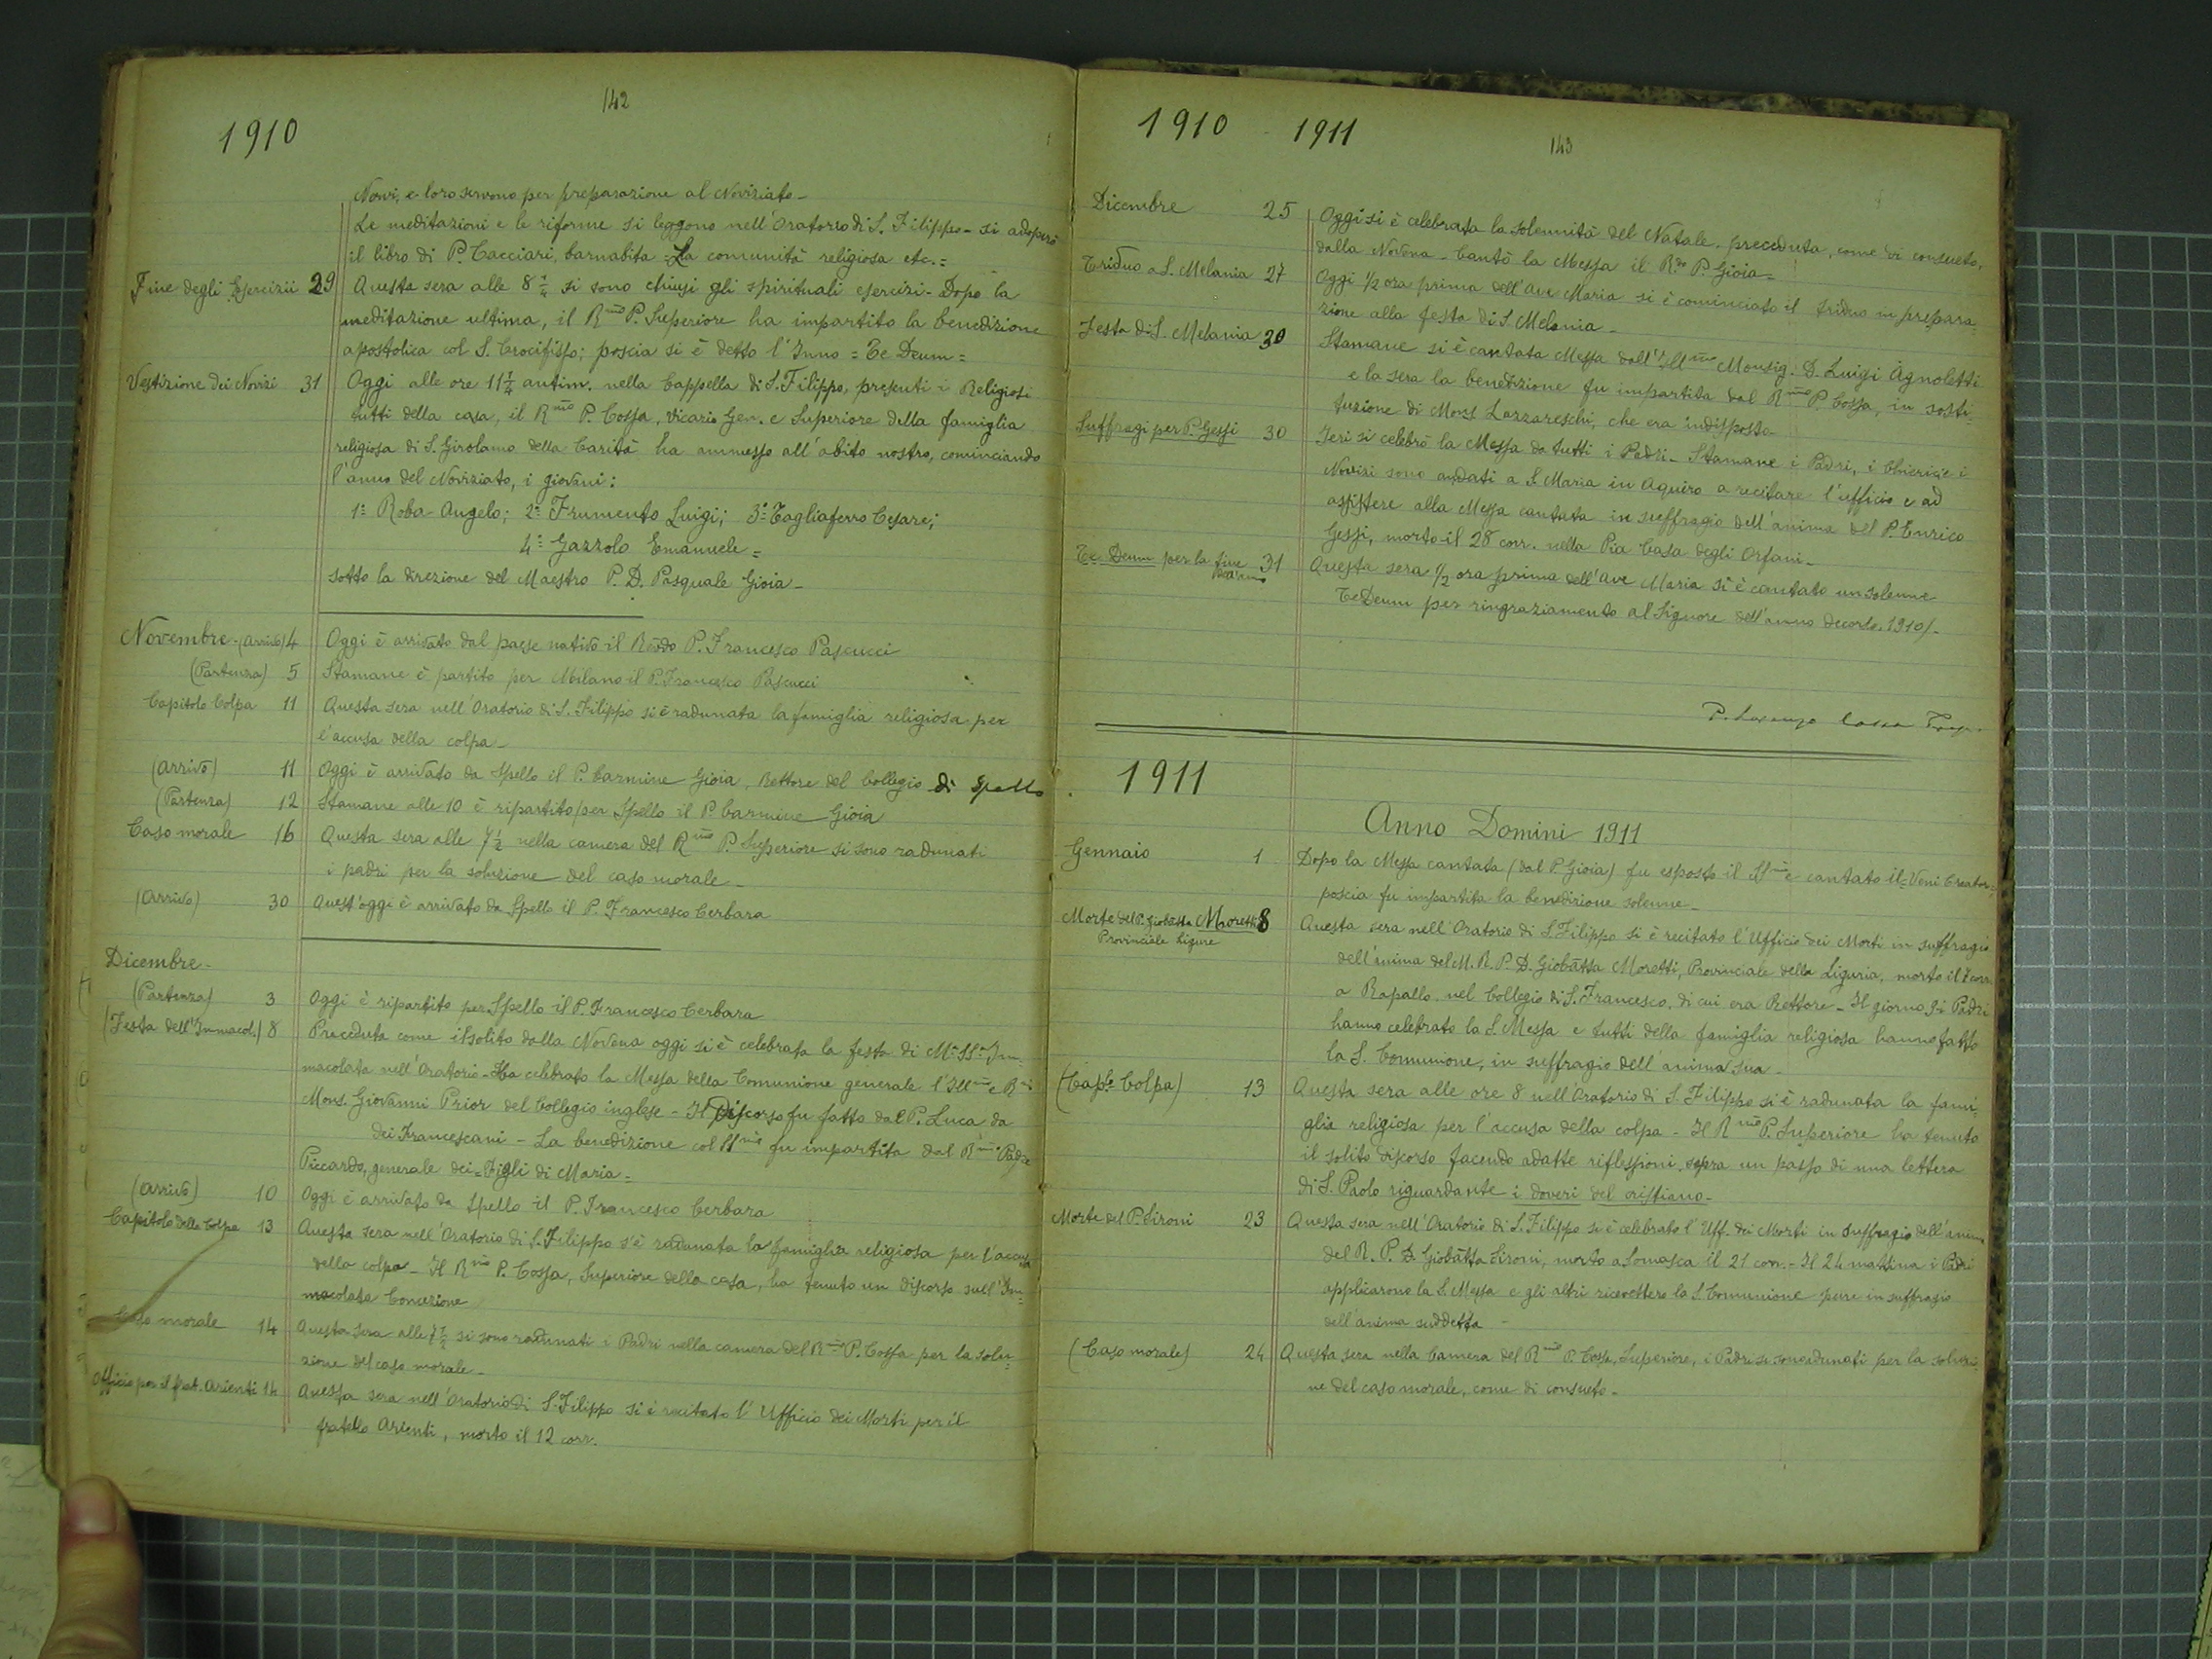 142
1910
Novi, e loro servono per preparazione al Noviziato -
Le meditazioni e le riforme si leggono nell'Oratorio di S. Filippo - si adoperò
il libro di P. Cacciari, barnabita = La comunità religiosa etc. =
Fine degli Esercizii 29 Questa sera alle 8 ½ si sono chiusi gli spirituali esercizi - Dopo la
meditazione ultima, il Rmo P. Superiore ha impartito la benedizione
apostolica col S. Crocifisso; poscia si è detto l'Inno = Te Deum =
Vestizione dei Novizi 31 Oggi alle ore 11 ½ antim. nella Cappella di S. Filippo, presenti i Religiosi
tutti della casa, il Rmo P. Cossa, Vicario Gen. e Superiore della famiglia
religiosa di S. Girolamo della Carità ha ammesso all'abito nostro, cominciando
l'anno del Noviziato, i giovani:
1º Roba Angelo; 2º Frumento Luigi; 3º Tagliaferro Cesare;
4º Gazzolo Emanuele =
sotto la direzione del Maestro P. D. Pasquale Gioia -
Novembre - (arrivo) 4 Oggi è arrivato dal paese nativo il Rndo P. Francesco Pascucci
(Partenza) 5 Stamane è partito per Milano il P. Francesco Pascucci
Capitolo Colpa 11 Questa sera nell'Oratorio di S. Filippo si è radunata la famiglia religiosa per
l'accusa della colpa -
(arrivo) 11 Oggi è arrivato da Spello il P. Carmine Gioia, Rettore del Collegio di Spello
(Partenza) 12 Stamane alle 10 è ripartito per Spello il P. Carmine Gioia
Caso morale 16 Questa sera alle 7 ½ nella camera del Rmo P. Superiore si sono radunati
i padri per la soluzione del caso morale -
(Arrivo) 30 Quest'oggi è arrivato da Spello il P. Francesco Cerbara
Dicembre -
(Partenza) 3 Oggi è ripartito per Spello il P. Francesco Cerbara
(Festa dell'Immacol.) 8 Preceduta come il solito dalla Novena oggi si è celebrata la festa di M. SS. Im-
macolata nell'Oratorio - Ha celebrato la Messa della Comunione generale l'Illmo e Rmo
Mons. Giovanni Prior del Collegio inglese - Il Discorso fu fatto dal P. Luca da
dei Francescani - La benedizione col SSmo fu impartita dal Rmo Padre
Piccardo, generale dei = Figli di Maria =
(arrivo) 10 Oggi è arrivato da Spello il P. Francesco Cerbara
Capitolo della Colpa 13 Questa sera nell'Oratorio di S. Filippo s'è radunata la famiglia religiosa per l'accusa
della colpa - Il Rmo P. Cossa, Superiore della casa, ha tenuto un discorso sull'Im-
macolata Concezione
Caso morale 14 Questa sera alle 7 ½ si sono radunati i Padri nella camera del Rmo P. Cossa per la solu-
zione del caso morale -
Officio per il frat. Arienti 14 Questa sera nell'Oratorio di S. Filippo si è recitato l'Ufficio dei Morti per il
fratello Arienti, morto il 12 corr.
1910 - 1911
143
Dicembre 25 Oggi si è celebrata la solennità del Natale, preceduta, come di consueto,
dalla Novena - Cantò la Messa il R.do P. Gioia -
Triduo a S. Melania 27 Oggi ½ ora prima dell'Ave Maria si è cominciato il triduo in prepara-
zione alla festa di S. Melania -
Festa di S. Melania 30 Stamane si è cantata Messa dall'Illmo Monsig. D. Luigi Agnoletti
e la sera la benedizione fu impartita dal Rmo P. Cossa, in sosti-
tuzione di Mons Lazzareschi, che era indisposto -
Suffragi per P. Gessi 30 Ieri si celebrò la Messa da tutti i Padri - Stamane i Padri, i Chierici e i
Novizi sono andati a S. Maria in Aquiro a recitare l'ufficio e ad
assistere alla Messa cantata in suffragio dell'anima del P. Enrico
Gessi, morto il 28 corr. nella Pia Casa degli Orfani -
Te Deum per la fine 31 Questa sera ½ ora prima dell'Ave Maria si è cantato un solenne
dell'anno
Te Deum per ringraziamento al Signore dell'anno decorso. 1910/-
P. Lorenzo Cossa Prep.
1911
Anno Domini 1911
Gennaio 1 Dopo la Messa cantata (dal P. Gioia) fu esposto il SSmo e cantato il = Veni Creator =
poscia fu impartita la benedizione solenne -
Morte del P. Giobatta Moretti 8 Questa sera nell'Oratorio di S. Filippo si è recitato l'Ufficio dei Morti in suffragio
Provinciale Ligure
dell'anima del M. R. P. D. Giobatta Moretti, Provinciale della Liguria, morto il 7 corr.
a Rapallo, nel Collegio di S. Francesco, di cui era Rettore - Il giorno 9 i Padri
hanno celebrato la S. Messa e tutti della famiglia religiosa hanno fatto
la S. Comunione, in suffragio dell'anima sua -
(Caplo Colpa) 13 Questa sera alle ore 8 nell'Oratorio di S. Filippo si è radunata la fami-
glia religiosa per l'accusa della colpa - Il Rmo P. Superiore ha tenuto
il solito discorso facendo adatte riflessioni sopra un passo di una lettera
di S. Paolo riguardante i doveri del cristiano -
Morte del P. Sironi 23 Questa sera nell'Oratorio di S. Filippo si è celebrato l'Uff. dei Morti in suffragio dell'anima
del R. P. D. Giobatta Sironi, morto a Somasca il 21 corr. - Il 24 mattina i Padri
applicarono la S. Messa e gli altri ricevettero la S. Comunione pure in suffragio
dell'anima suddetta -
(Caso morale) 24 Questa sera nella Camera del Rmo P. Cossa, Superiore, i Padri si sono radunati per la soluzio
ne del caso morale, come di consueto -